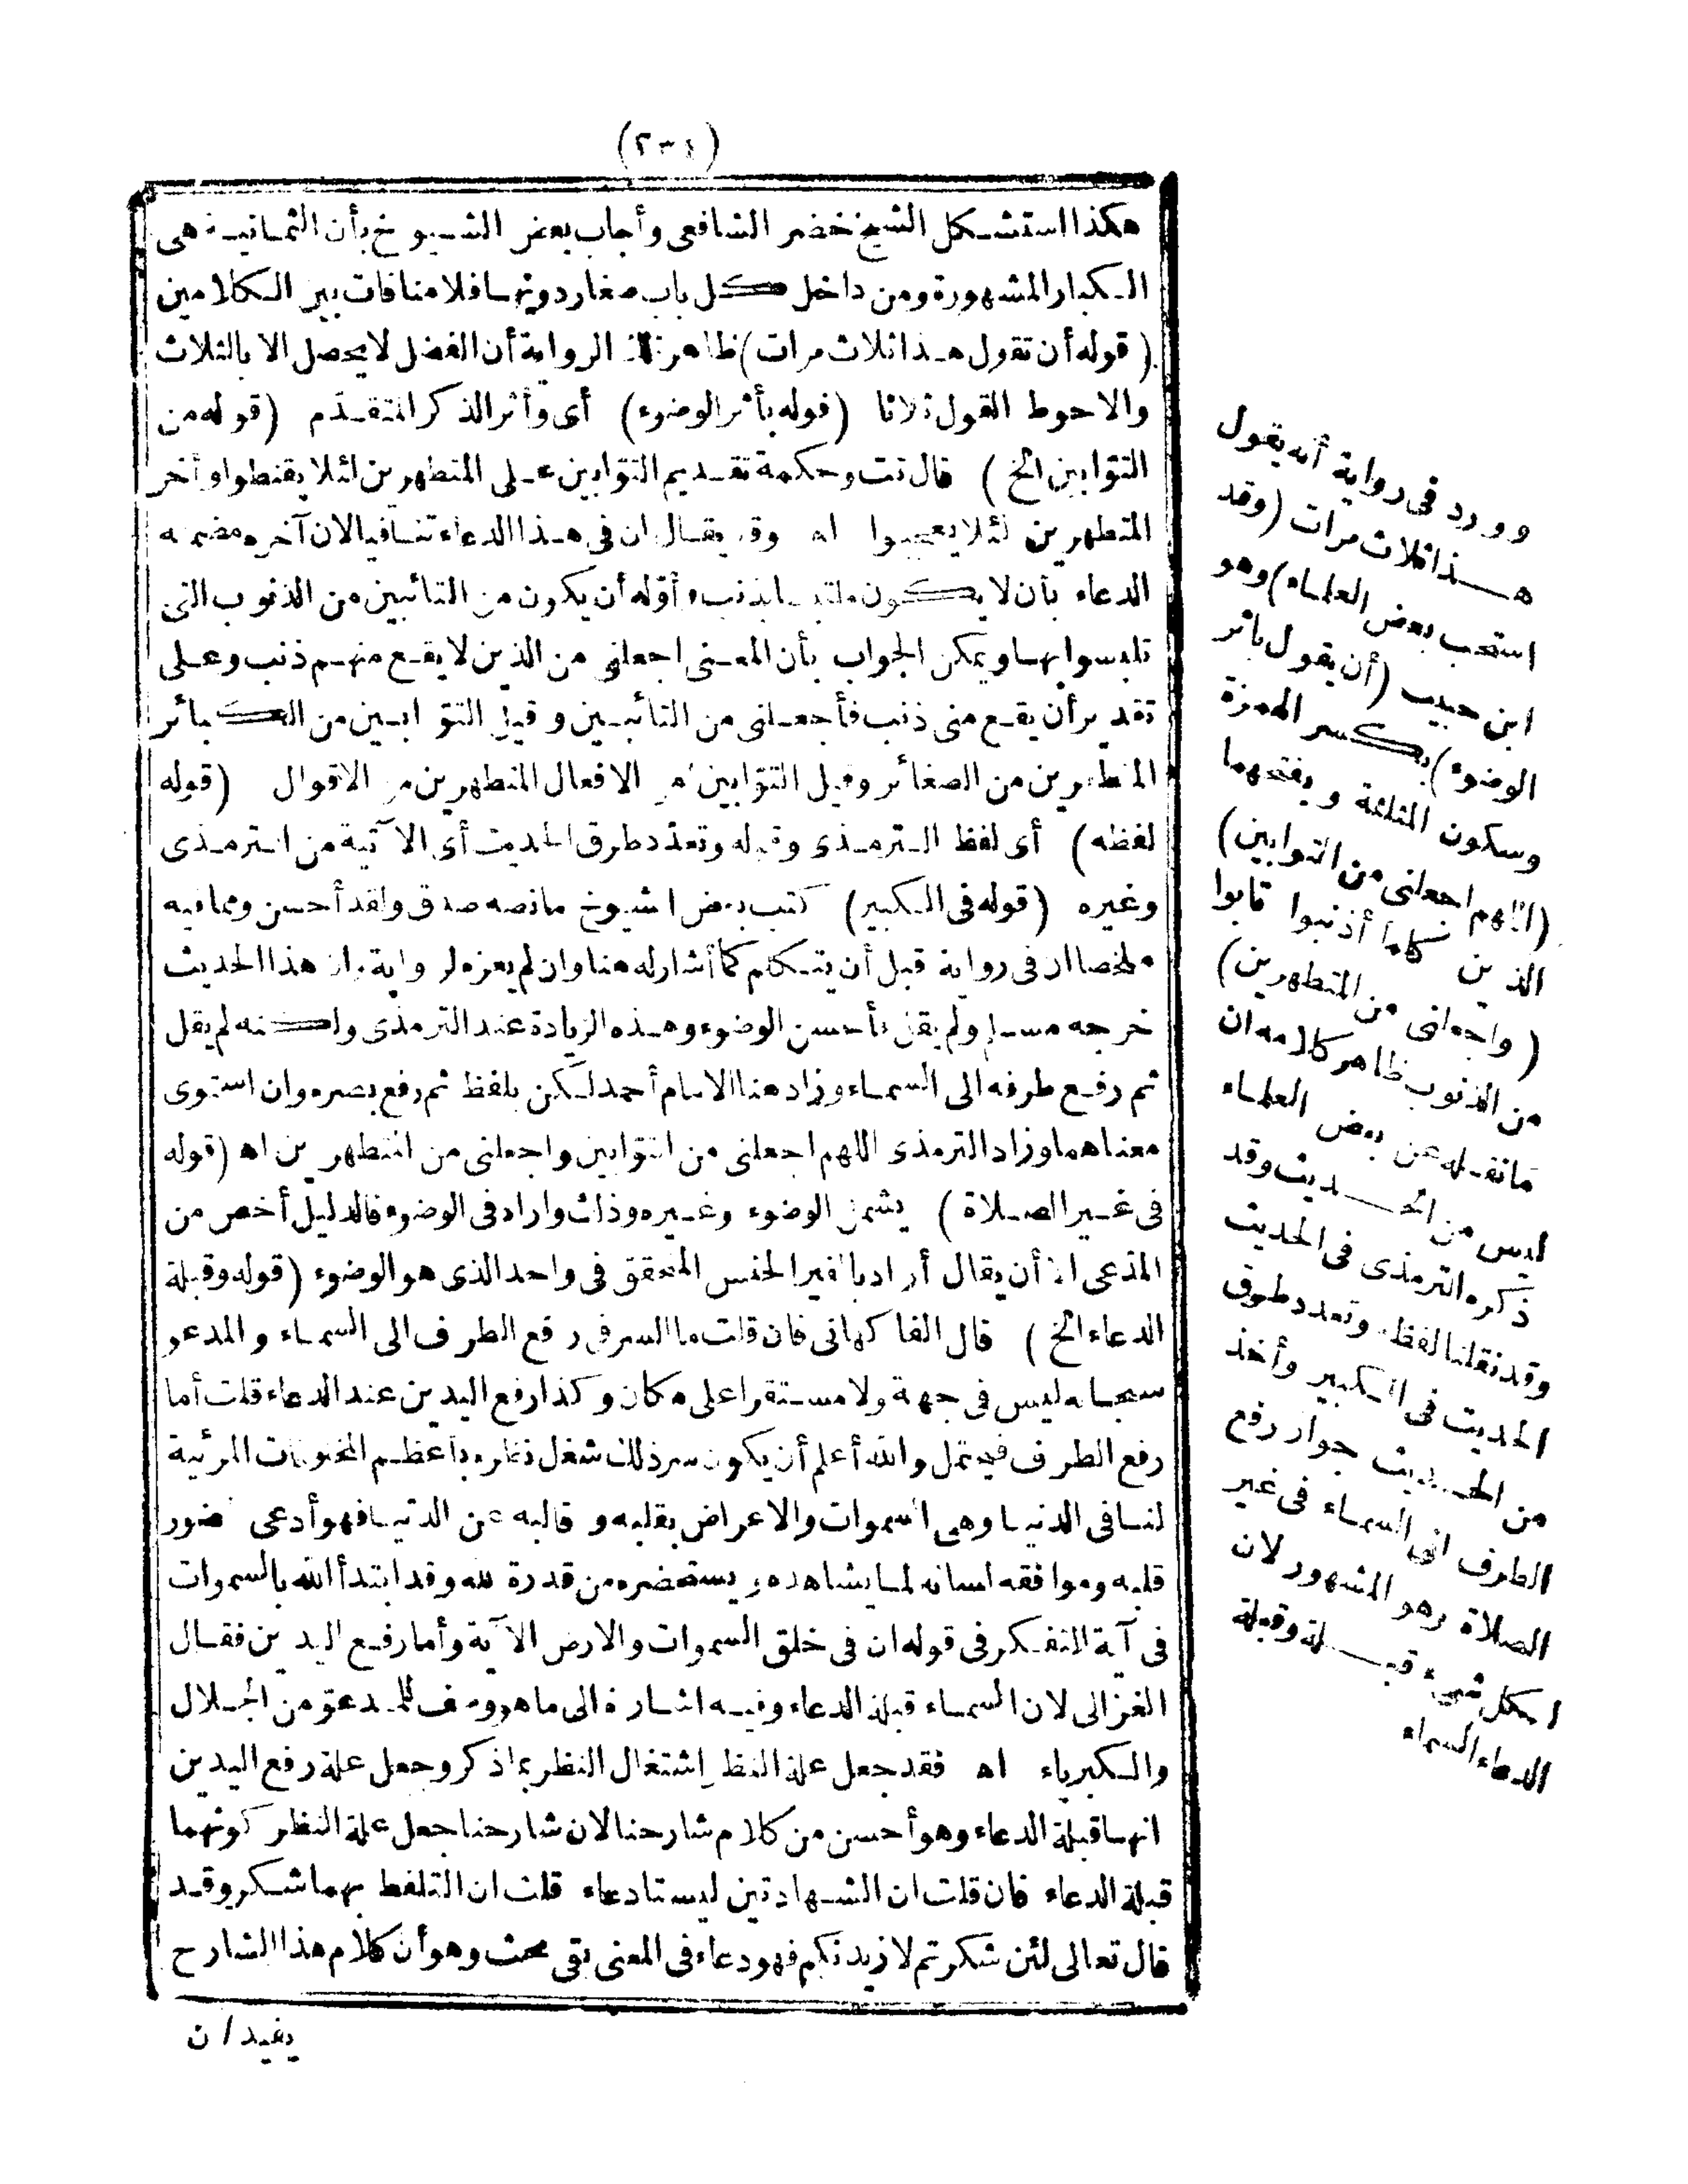 هكذا استشكل الشيخ خضر الشافعى وأجاب بعض الشيوخ بأن الثمانية هى
الكبار المشهورة ومن داخل كل باب صغار دونها فلا منافات بين الكلامين
(قوله أن تقول هذا ثلاث مرات) ظاهر تلك الرواية أن الفضل لا يحصل الا بالثلاث
والاحوط القول ثلاثا (قوله بأثر الوضوء) أى وأثر الذكر المتقدّم (قوله من
التوّابين الخ) قال تت وحكمة تقديم التوّابين على المتطهرين لئلا يقنطوا وأخر
المتطهرين لئلا يعجبوا اه وقد يقال ان فى هذا الدعاء تنافيا لان آخره مضمنه
الدعاء بأن لا يكون ملتبسا بذنب وأوّله أن يكون من التائبين من الذنوب التى
تلبسوا بها ويمكن الجواب بأن المعنى اجعلنى من الذين لا يقع منهم ذنب وعلى
تقدير أن يقع منى ذنب فأجعلنى من التائبين وقيل التوّابين من الكبائر
المتطهرين من الصغائر وقيل التوّابين من الافعال المتطهرين من الاقوال (قوله
لفظه) أى لفظ الترمذى وقوله وتعدّد طرق الحديث أى الآتية من الترمذى
وغيره (قوله فى الكبير) كتب بعض الشيوخ مانصه صدق ولقد أحسن ومما فيه
ملخصا ان فى رواية قبل أن يتكلم كما أشار له هنا وان لم يعزه لرواية وان هذا الحديث
خرجه مسلم ولم يقل فأحسن الوضوء وهذه الزيادة عند الترمذى ولكنه لم يقل
ثم رفع طرفه الى السماء وزاد هنا الامام أحمد لكن بلفظ ثم رفع بصره وان استوى
معناهما وزاد الترمذى اللهم اجعلنى من التوّابين واجعلنى من المتطهرين اه (قوله
فى غير الصلاة) يشمل الوضوء وغيره وذاك وارد فى الوضوء فالدليل أخص من
المدّعى الا أن يقال أراد بالغير الجنس المتحقق فى واحد الذى هو الوضوء (قوله وقبلة
الدعاء الخ) قال الفاكهانى فان قلت ما السر فى رفع الطرف الى السماء والمدعو
سبحانه ليس فى جهة ولا مستقرا على مكان وكذا رفع اليدين عند الدعاء قلت أما
رفع الطرف فيحتمل والله أعلم أن يكون سر ذلك شغل نظره بأعظم المخلوقات المرئية
لنا فى الدنيا وهى السموات والاعراض بقلبه وقالبه عن الدنيا فهو أدعى لحضور
قلبه وموافقه لسانه لما يشاهده ويستحضره من قدرة الله وقد ابتدأ الله بالسموات
فى آية التفكر فى قوله ان فى خلق السموات والارض الآية وأما رفع اليدين فقال
الغزالى لان السماء قبلة الدعاء وفيه اشارة الى ما هو وصف للمدعوّ من الجلال
والكبرياء اه فقد جعل علة النظر اشتغال النظر بماذكر وجعل علة رفع اليدين
انها قبلة الدعاء وهو أحسن من كلام شارحنا لان شارحنا جعل علة النظر كونهما
قبلة الدعاء فان قلت ان الشهادتين ليستا دعاء قلت ان التلفظ بهما شكر وقد
قال تعالى لئن شكرتم لازيدنكم فهو دعاء فى المعنى بقى بحث وهو أن كلام هذا الشارح
يفيد ان
وورد فى رواية أنه يقول
هذا ثلاث مرات (وقد
استحب بعض العلماء) وهو
ابن حبيب (أن يقول بأثر
الوضوء) بكسر الهمزة
وسكون المثلثة وبفتحهما
(اللهم اجعلنى من التوابين)
الذين كلما أذنبوا تابوا
(واجعلنى من المتطهرين)
من الذنوب ظاهر كلامه ان
ما نقله عن بعض العلماء
ليس من الحديث وقد
ذكره الترمذى فى الحديث
وقد نقلنا لفظه وتعدد طرق
الحديث فى الكبير وأخذ
من الحديث جواز رفع
الطرف الى السماء فى غير
الصلاة وهو المشهور لان
لكل شىء قبلة وقبلة
الدعاء السماء